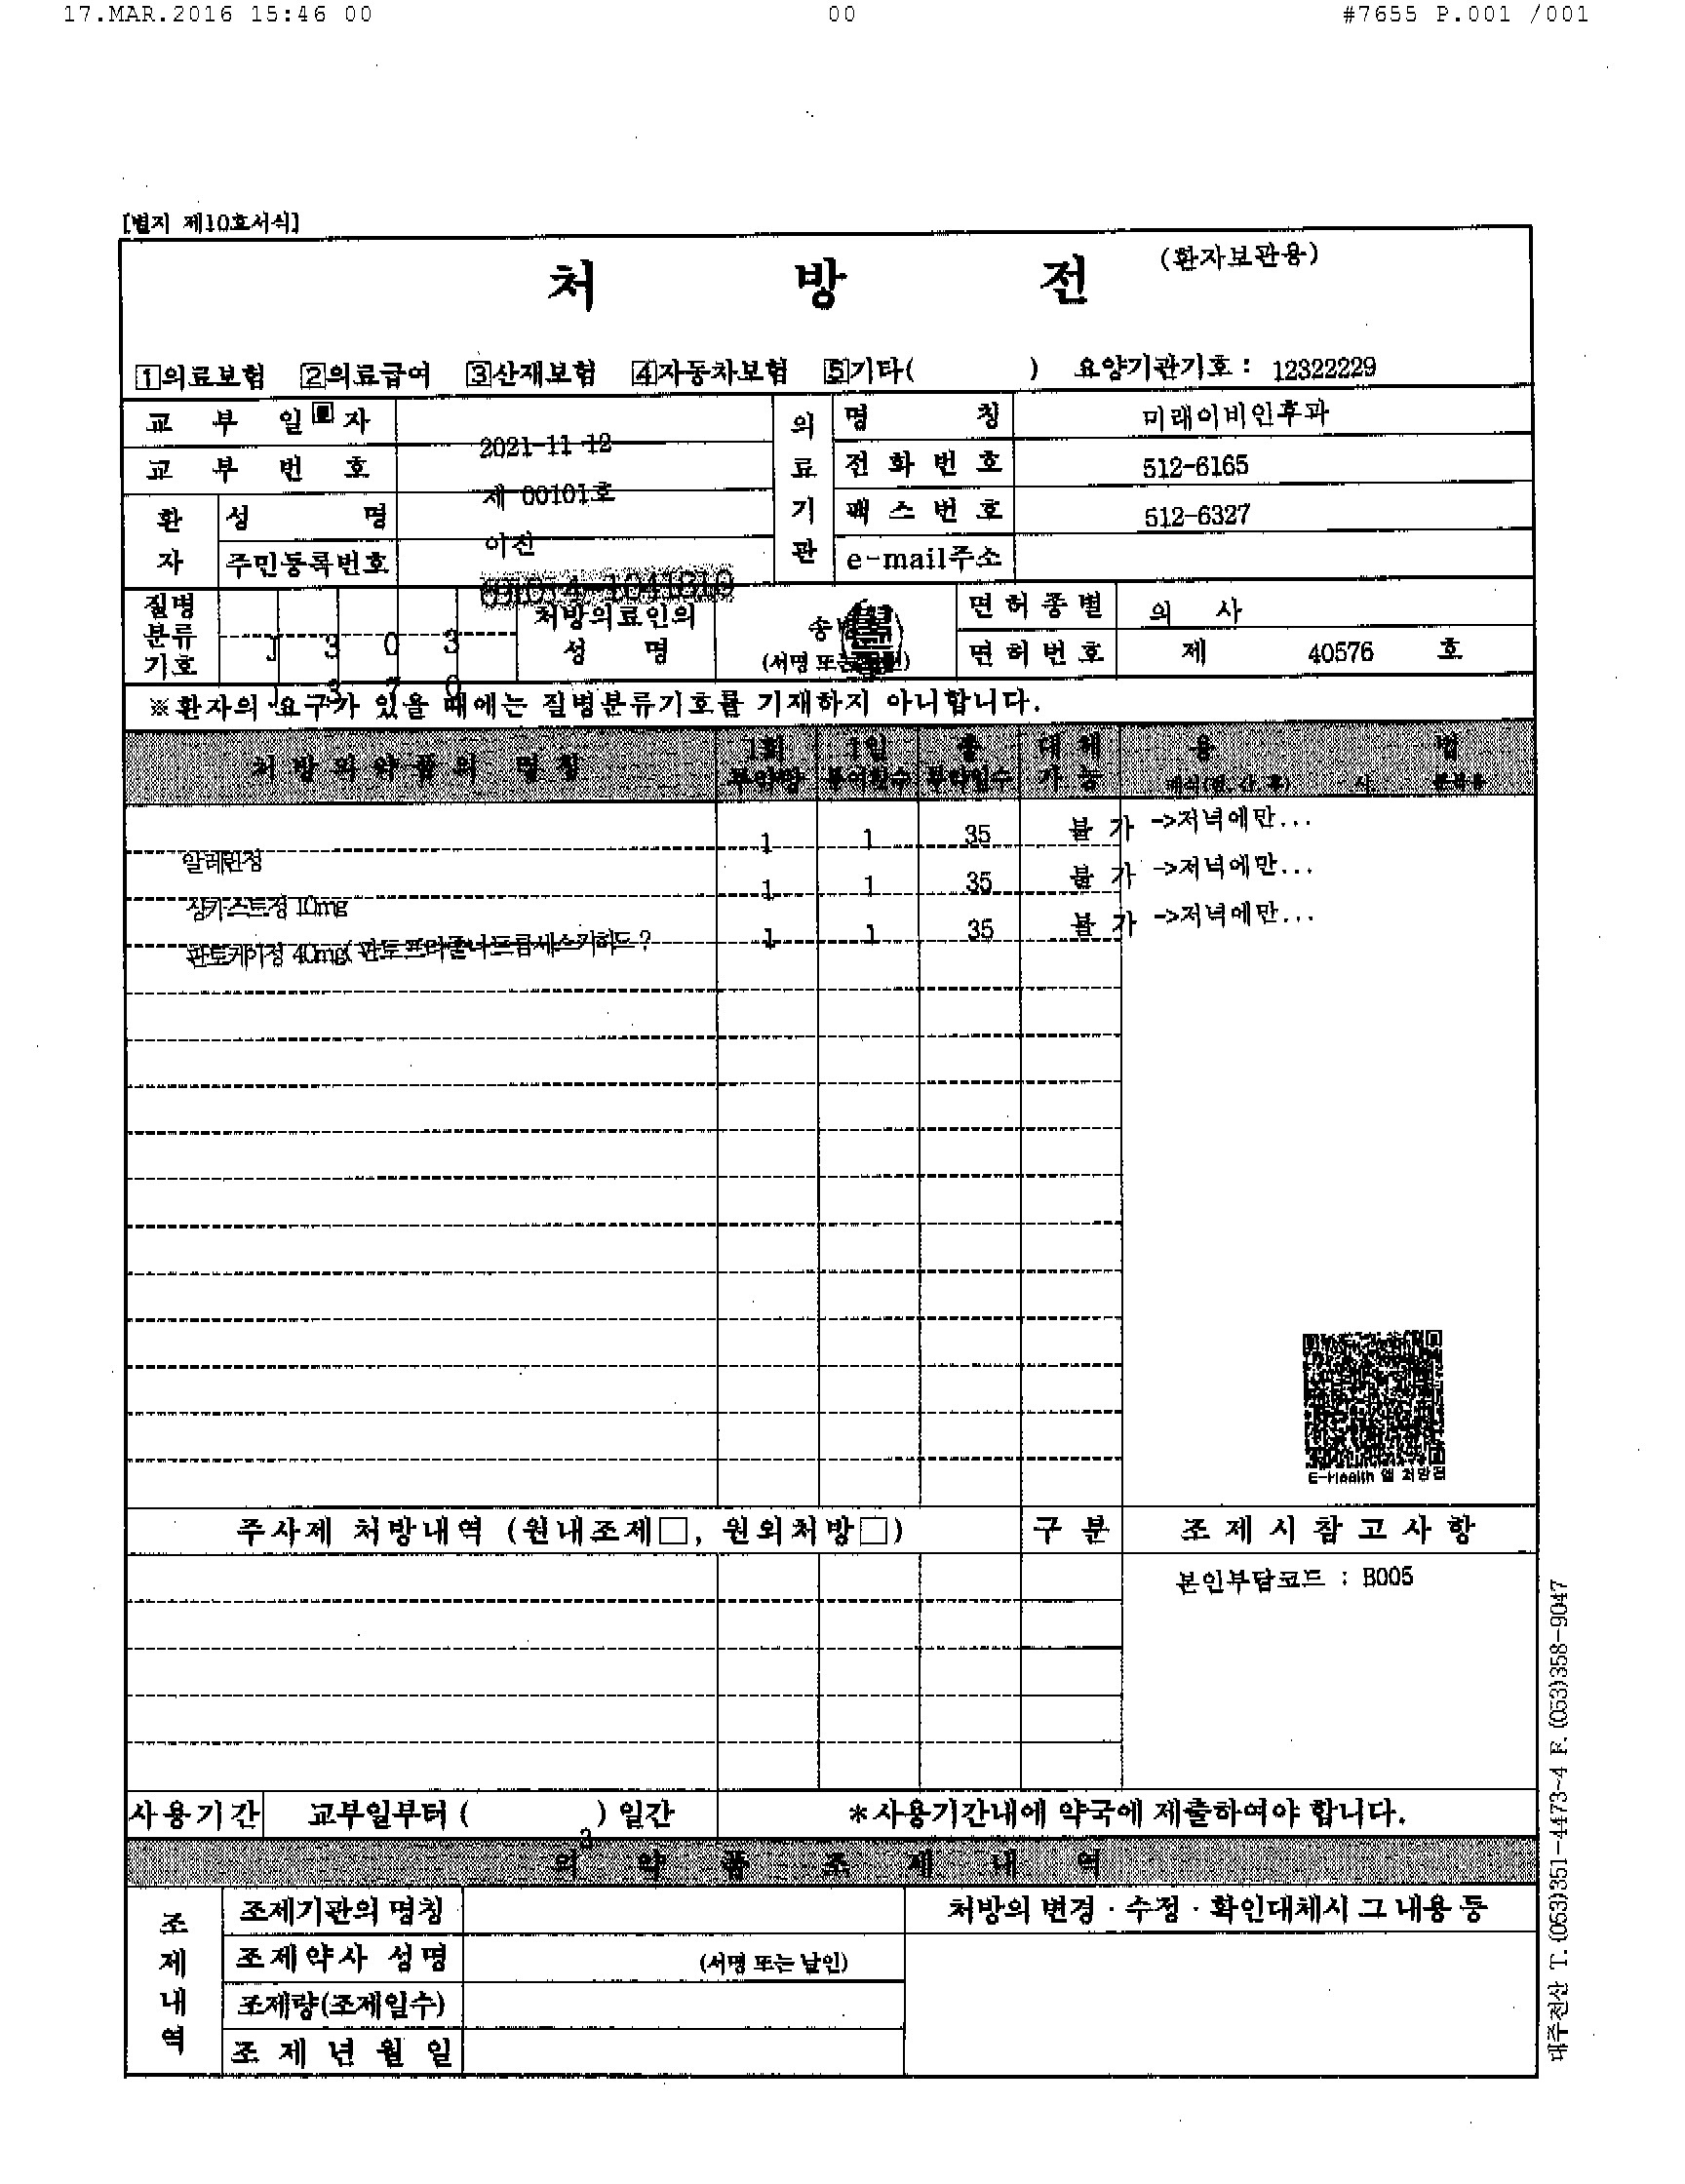 17.MAR.2016 15:46 00 00 #7655 P.001 /001
[별지 제10호서식]
처 방 전 (환자보관용)
1의료보험 2의료급여 3산재보험 4자동차보험 5기타( ) 요양기관기호 : 12322229
교 부 일 자 2021-11-12 의료기관 명 칭 미래이비인후과
교 부 번 호 제 00101호 전 화 번 호 512-6165
환자 성 명 이진 팩 스 번 호 512-6327
주민등록번호 e-mail주소
질병분류기호 J 3 0 3 처방의료인의 성 명 (서명 또는 날인) 면 허 종 별 의 사
J 3 7 0 면 허 번 호 제 40576 호
※환자의 요구가 있을 때에는 질병분류기호를 기재하지 아니합니다.
처 방 의 약 품 의 명 칭 1회 투약량 1일 투여횟수 총 투약일수 대 체 가 능 용 법
알레윈정 1 1 35 불 가 ->저녁에만...
싱카스트정 10mg 1 1 35 불 가 ->저녁에만...
판토케이정 40mg( 1 1 35 불 가 ->저녁에만...
E-Health 앱 처방전
주사제 처방내역 (원내조제□, 원외처방□) 구 분 조 제 시 참 고 사 항
본인부담코드 : B005
사용기간 교부일부터 ( 3 ) 일간 *사용기간내에 약국에 제출하여야 합니다.
의 약 품 조 제 내 역
조제내역 조제기관의 명칭 처방의 변경 · 수정 · 확인대체시 그 내용 등
조제약사 성명 (서명 또는 날인)
조제량(조제일수)
조 제 년 월 일
대주전산 T.(053)351-4473~4 F.(053)358-9047